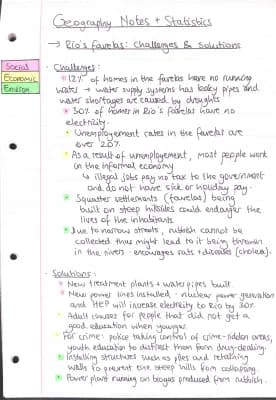 Geography Notes + Statistics
→ Rio's favelas: Challenges & Solutions
Social
Economic
Environ.
· Challenges:
* 12% of homes in the favelas have no running
water → water supply systems has leaky pipes and
water shortages are caused by droughts
* 30% of homes in Rio's favelas have no
electricity.
· Unemployement rates in the favelas are
over 20%
· As a result of unemployement, most people work
in the informal economy
↳ illegal jobs pay no tax to the government
and do not have sick or holiday pay.
* Squatter settlements (favelas) being
built on steep hillsides could endanger the
lives of the inhabitants
· Due to narrow streets, rubbish cannot be
collected thus might lead to it being thrown
in the rivers - encourages rats + diseases (cholera).
· Solutions:
* New treatment plants + water pipes built.
* New power lines installed, nuclear power generation
and HEP will increase electricity to Rio by 30%
· Adult courses for people that did not get a
good education when younger
· For crime: police taking control of crime-ridden areas,
youth education to distract them from drug-dealing.
* Installing structures such as piles and retaining
walls to prevent the steep hills from collapsing.
* Power plant running on biogas produced from rubbish.